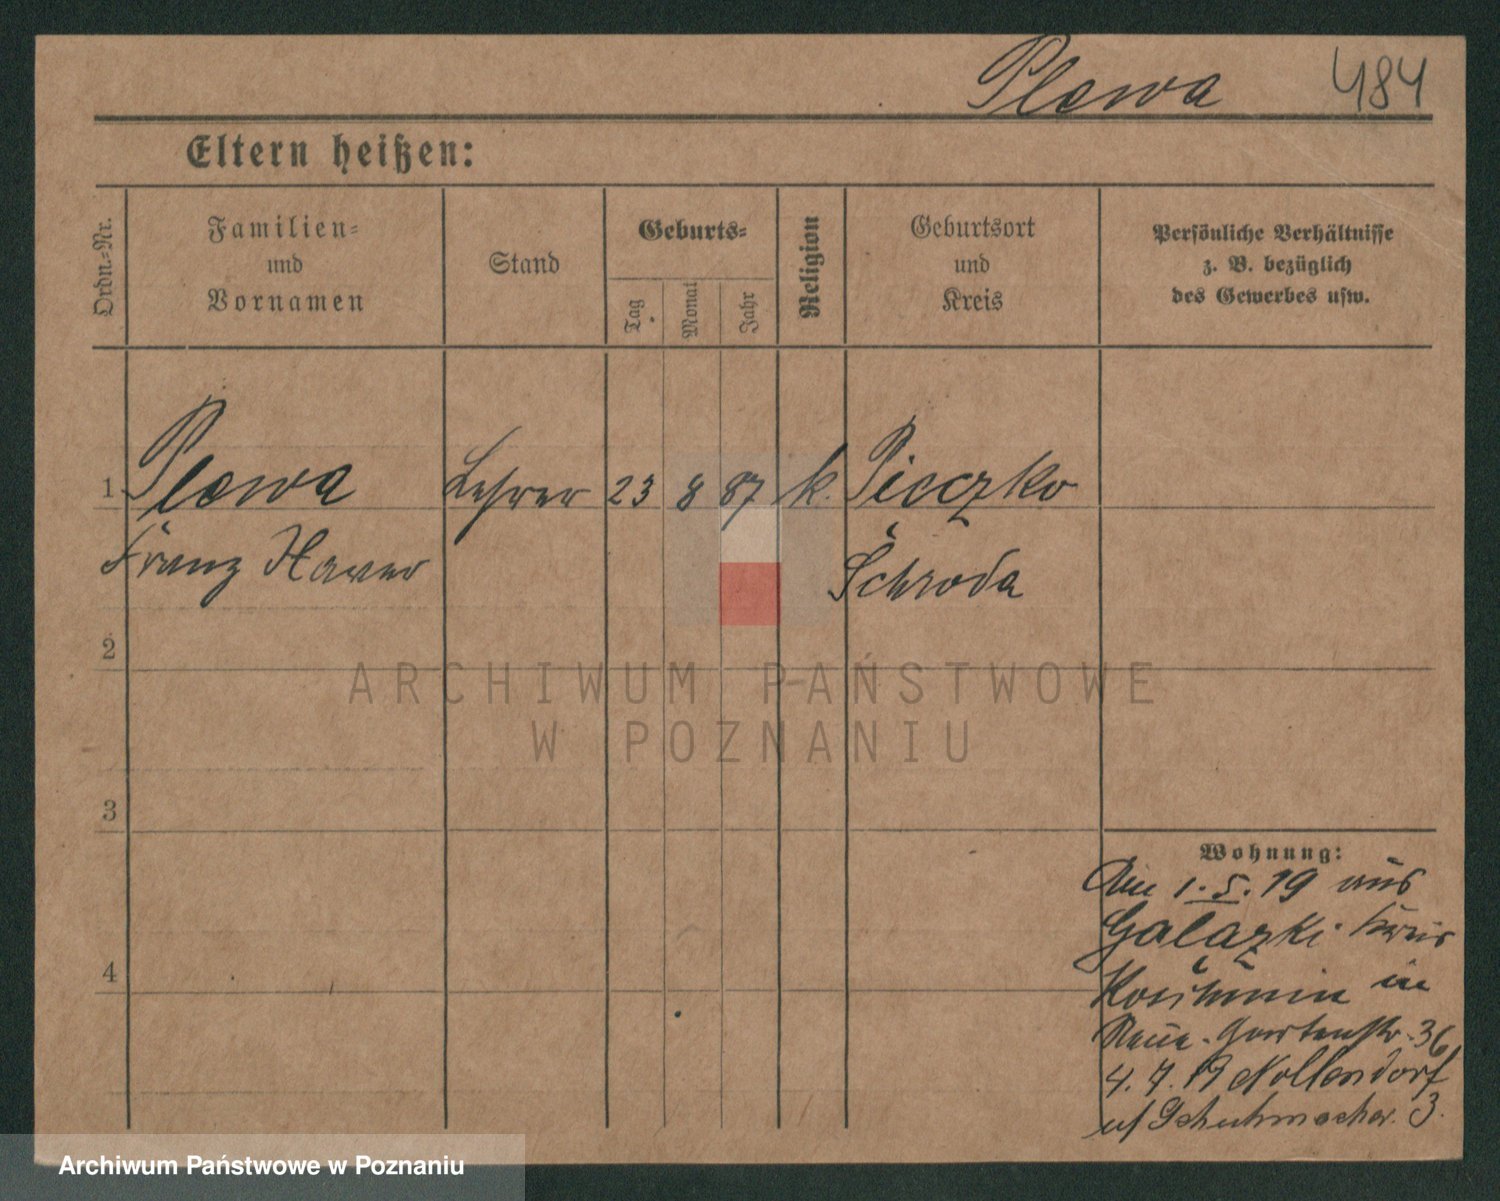 Plewa 484
Eltern heißen:
Ordn.-Nr.
Familien-
und
Vornamen
Stand
Geburts-
Tag
Monat
Jahr
Religion
Geburtsort
und
Kreis
Persönliche Verhältnisse
z. B. bezüglich
des Gewerbes usw.
1 Plewa Lehrer 23 8 87 k. Pieczko
Franz Xaver Schroda
2
3
4
Wohnung:
Am 1.5.19 aus
Galazki Kreis
Koschmin in
Neue Gartenstr. 36
4. 7. 19 Nollendorf
b/ Schuhmacher 3.
ARCHIWUM PAŃSTWOWE
W POZNANIU
Archiwum Państwowe w Poznaniu